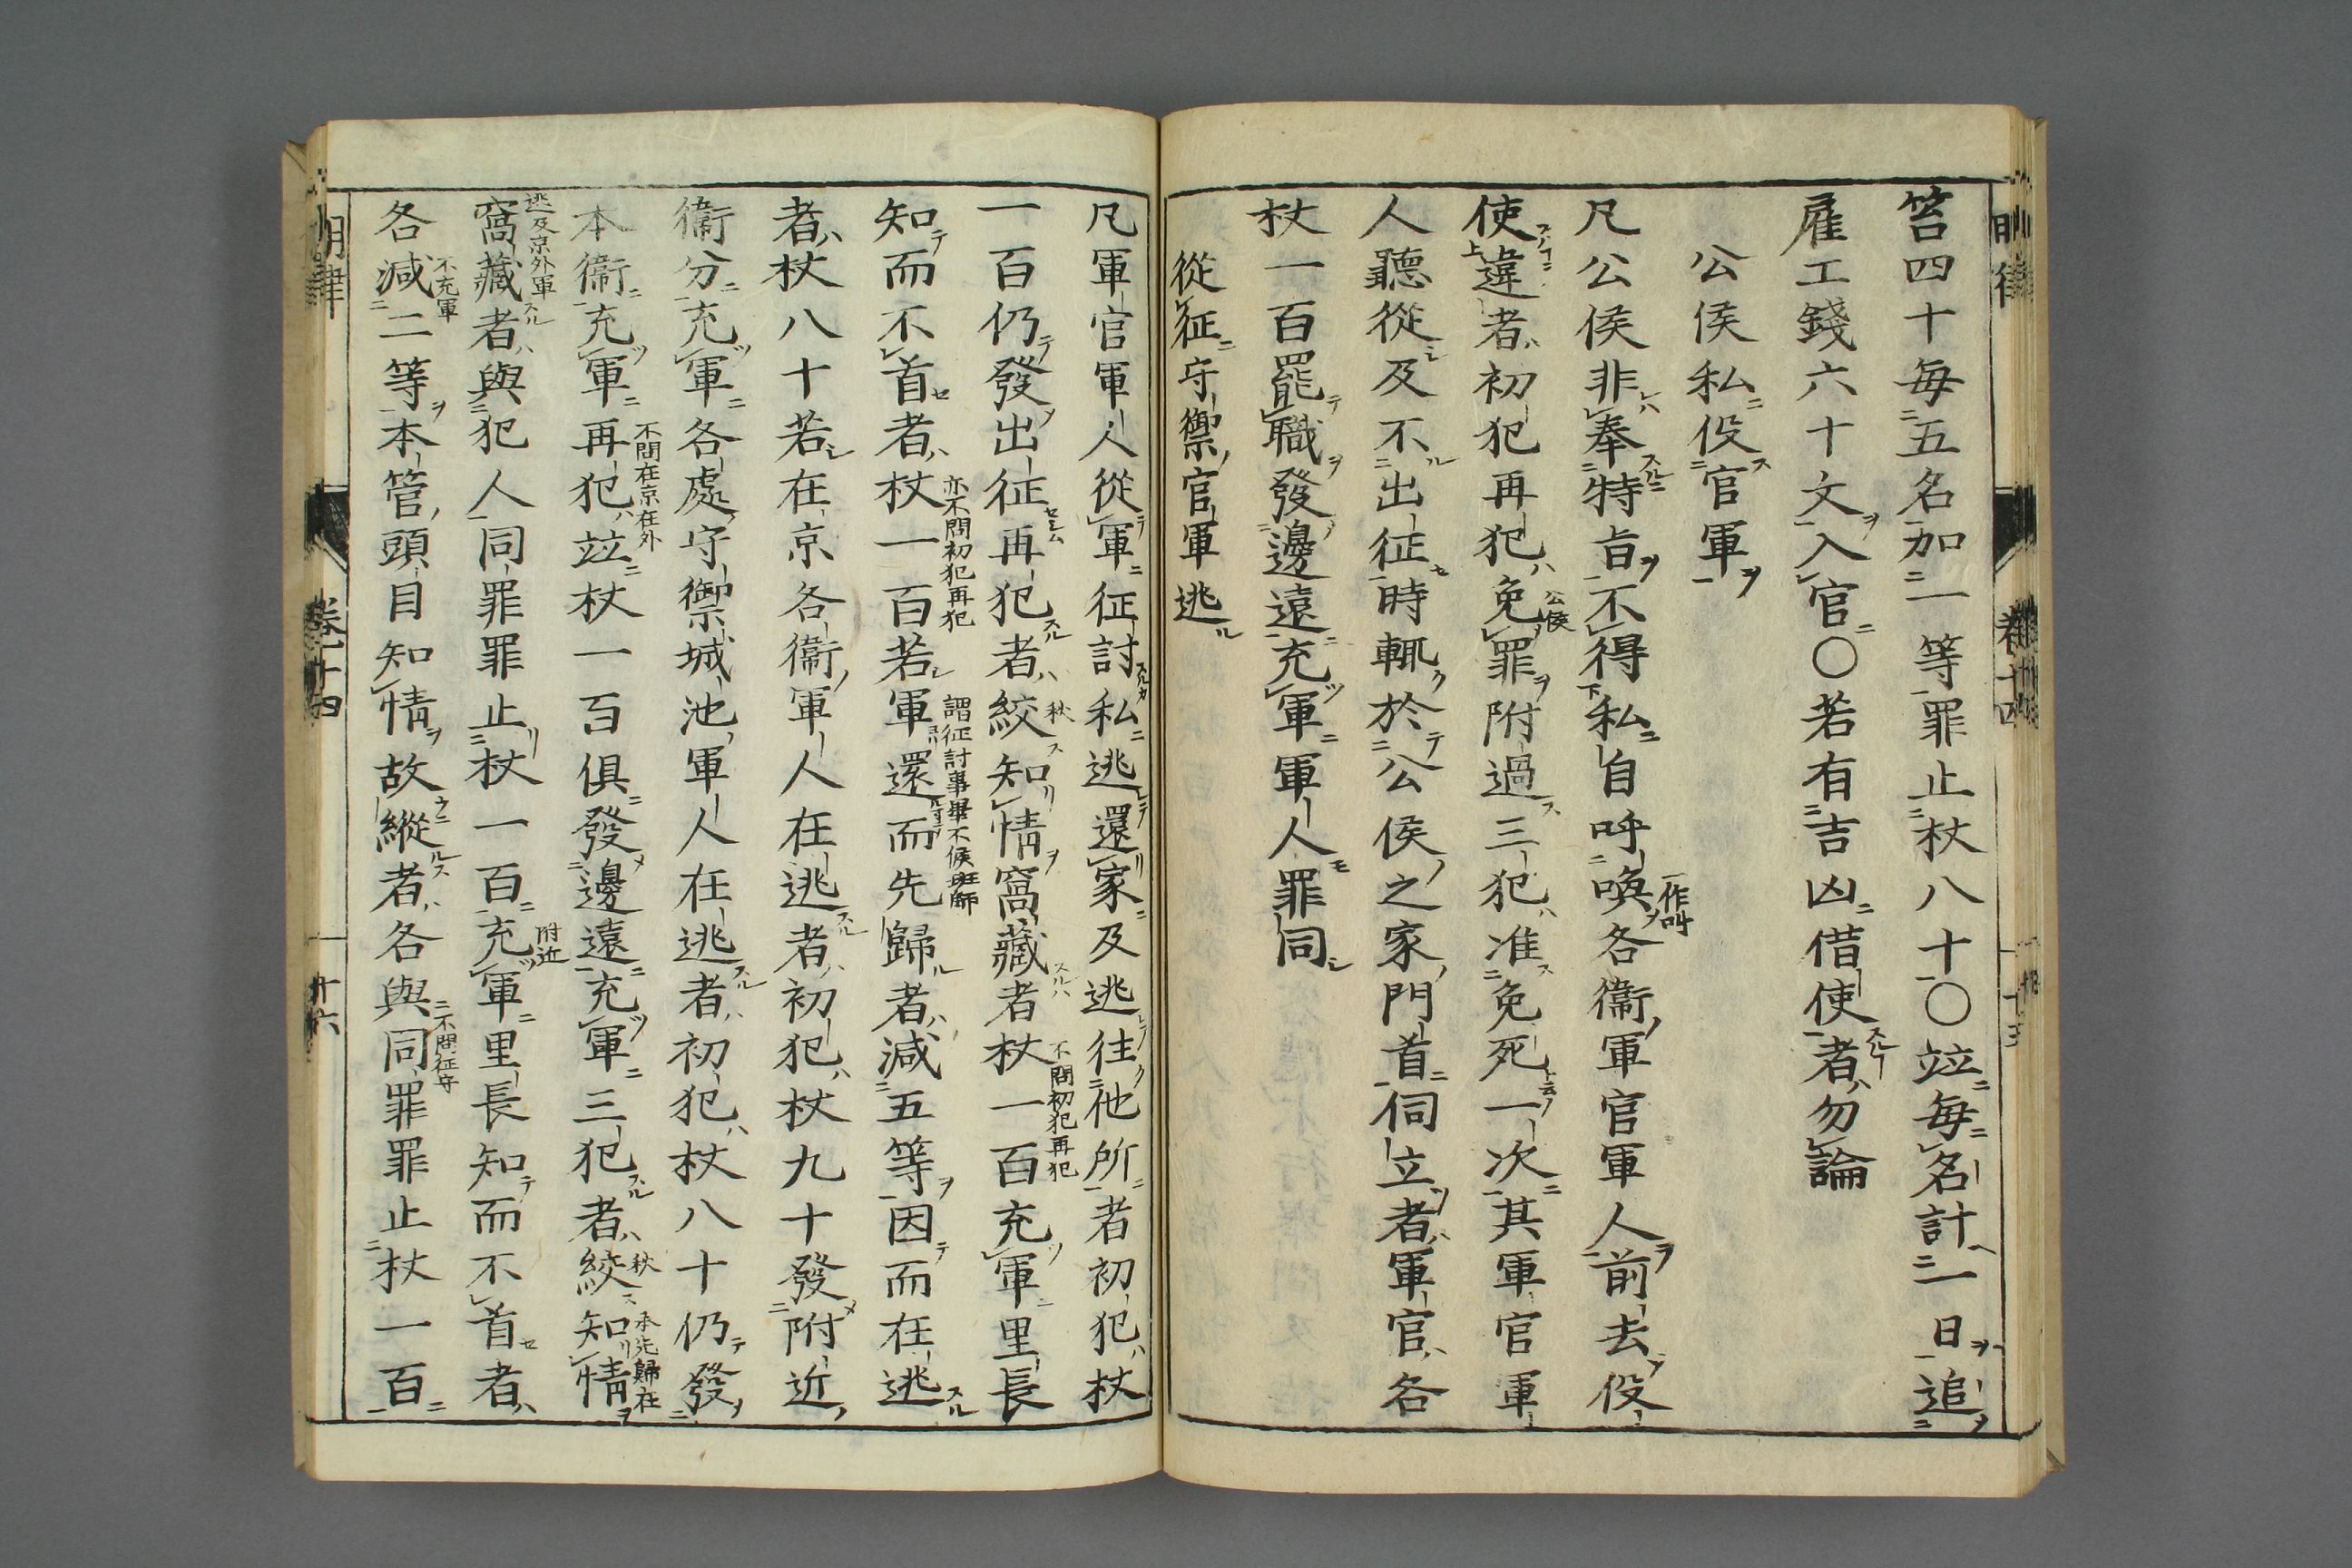 笞四十每五名加一等罪止杖八十〇竝每名計一日追
雇工錢六十文入官〇若有吉凶借使者勿論
公侯私役官軍
凡公侯非奉特旨不得私自呼喚各衞軍官軍人前去役
一作叫
使違者初犯再犯免罪附過三犯准免死一次其軍官軍
公侯
人聽從及不出征時輒於公侯之家門首伺立者軍官各
杖一百罷職發邊遠充軍軍人罪同
從征守禦官軍逃
凡軍官軍人從軍征討私逃還家及逃往他所者初犯杖
一百仍發出征再犯者絞知情窩藏者杖一百充軍里長
秋
不問初犯再犯
知而不首者杖一百若軍還而先歸者減五等因而在逃
亦不問初犯再犯
謂征討事畢不候班師
者杖八十若在京各衞軍人在逃者初犯杖九十發附近
衞分充軍各處守禦城池軍人在逃者初犯杖八十仍發
本衞充軍再犯竝杖一百俱發邊遠充軍三犯者絞知情
不問在京在外
秋
本先歸在
逃及京外軍
窩藏者與犯人同罪罪止杖一百充軍里長知而不首者
附近
各減二等本管頭目知情故縱者各與同罪罪止杖一百
不充軍
不問征守
明律
卷十四
十六